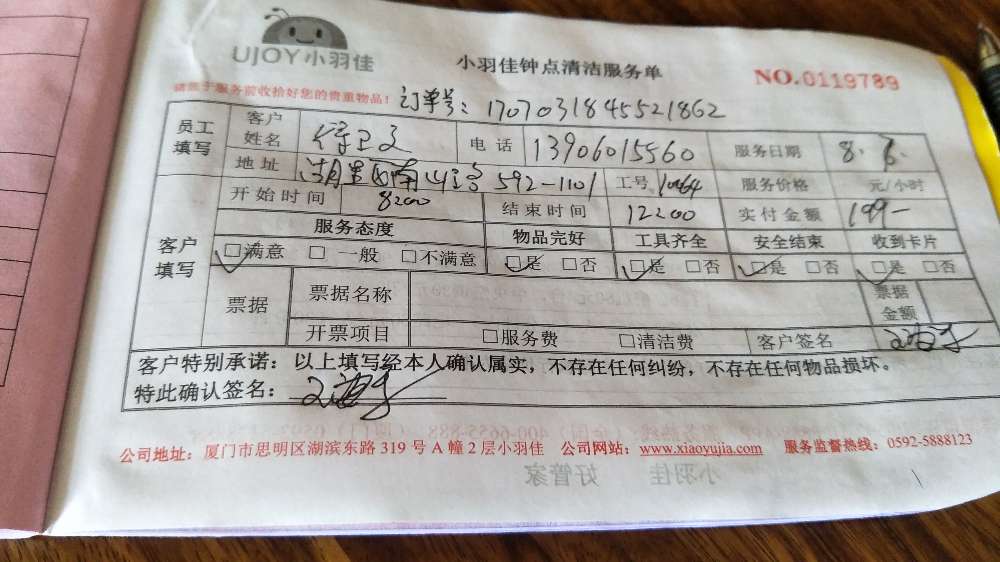 UJOY小羽佳
小羽佳钟点清洁服务单
NO.0119789
请您于服务前收拾好您的贵重物品！ 订单号：1707031845521862
员工填写 客户姓名 电话 13906015560 服务日期 8.6.
地址 湖里区南山路 592-1101 工号 10464 服务价格 元/小时
开始时间 8200 结束时间 12200 实付金额 199-
客户填写 服务态度 物品完好 工具齐全 安全结束 收到卡片
☐满意 ☐一般 ☐不满意 ☐是 ☐否 ☐是 ☐否 ☐是 ☐否 ☐是 ☐否
票据 票据名称 票据金额
开票项目 ☐服务费 ☐清洁费 客户签名
客户特别承诺：以上填写经本人确认属实，不存在任何纠纷，不存在任何物品损坏。
特此确认签名：
公司地址：厦门市思明区湖滨东路 319 号 A 幢 2 层小羽佳 公司网站：www.xiaoyujia.com 服务监督热线：0592-5888123
小羽佳 好管家